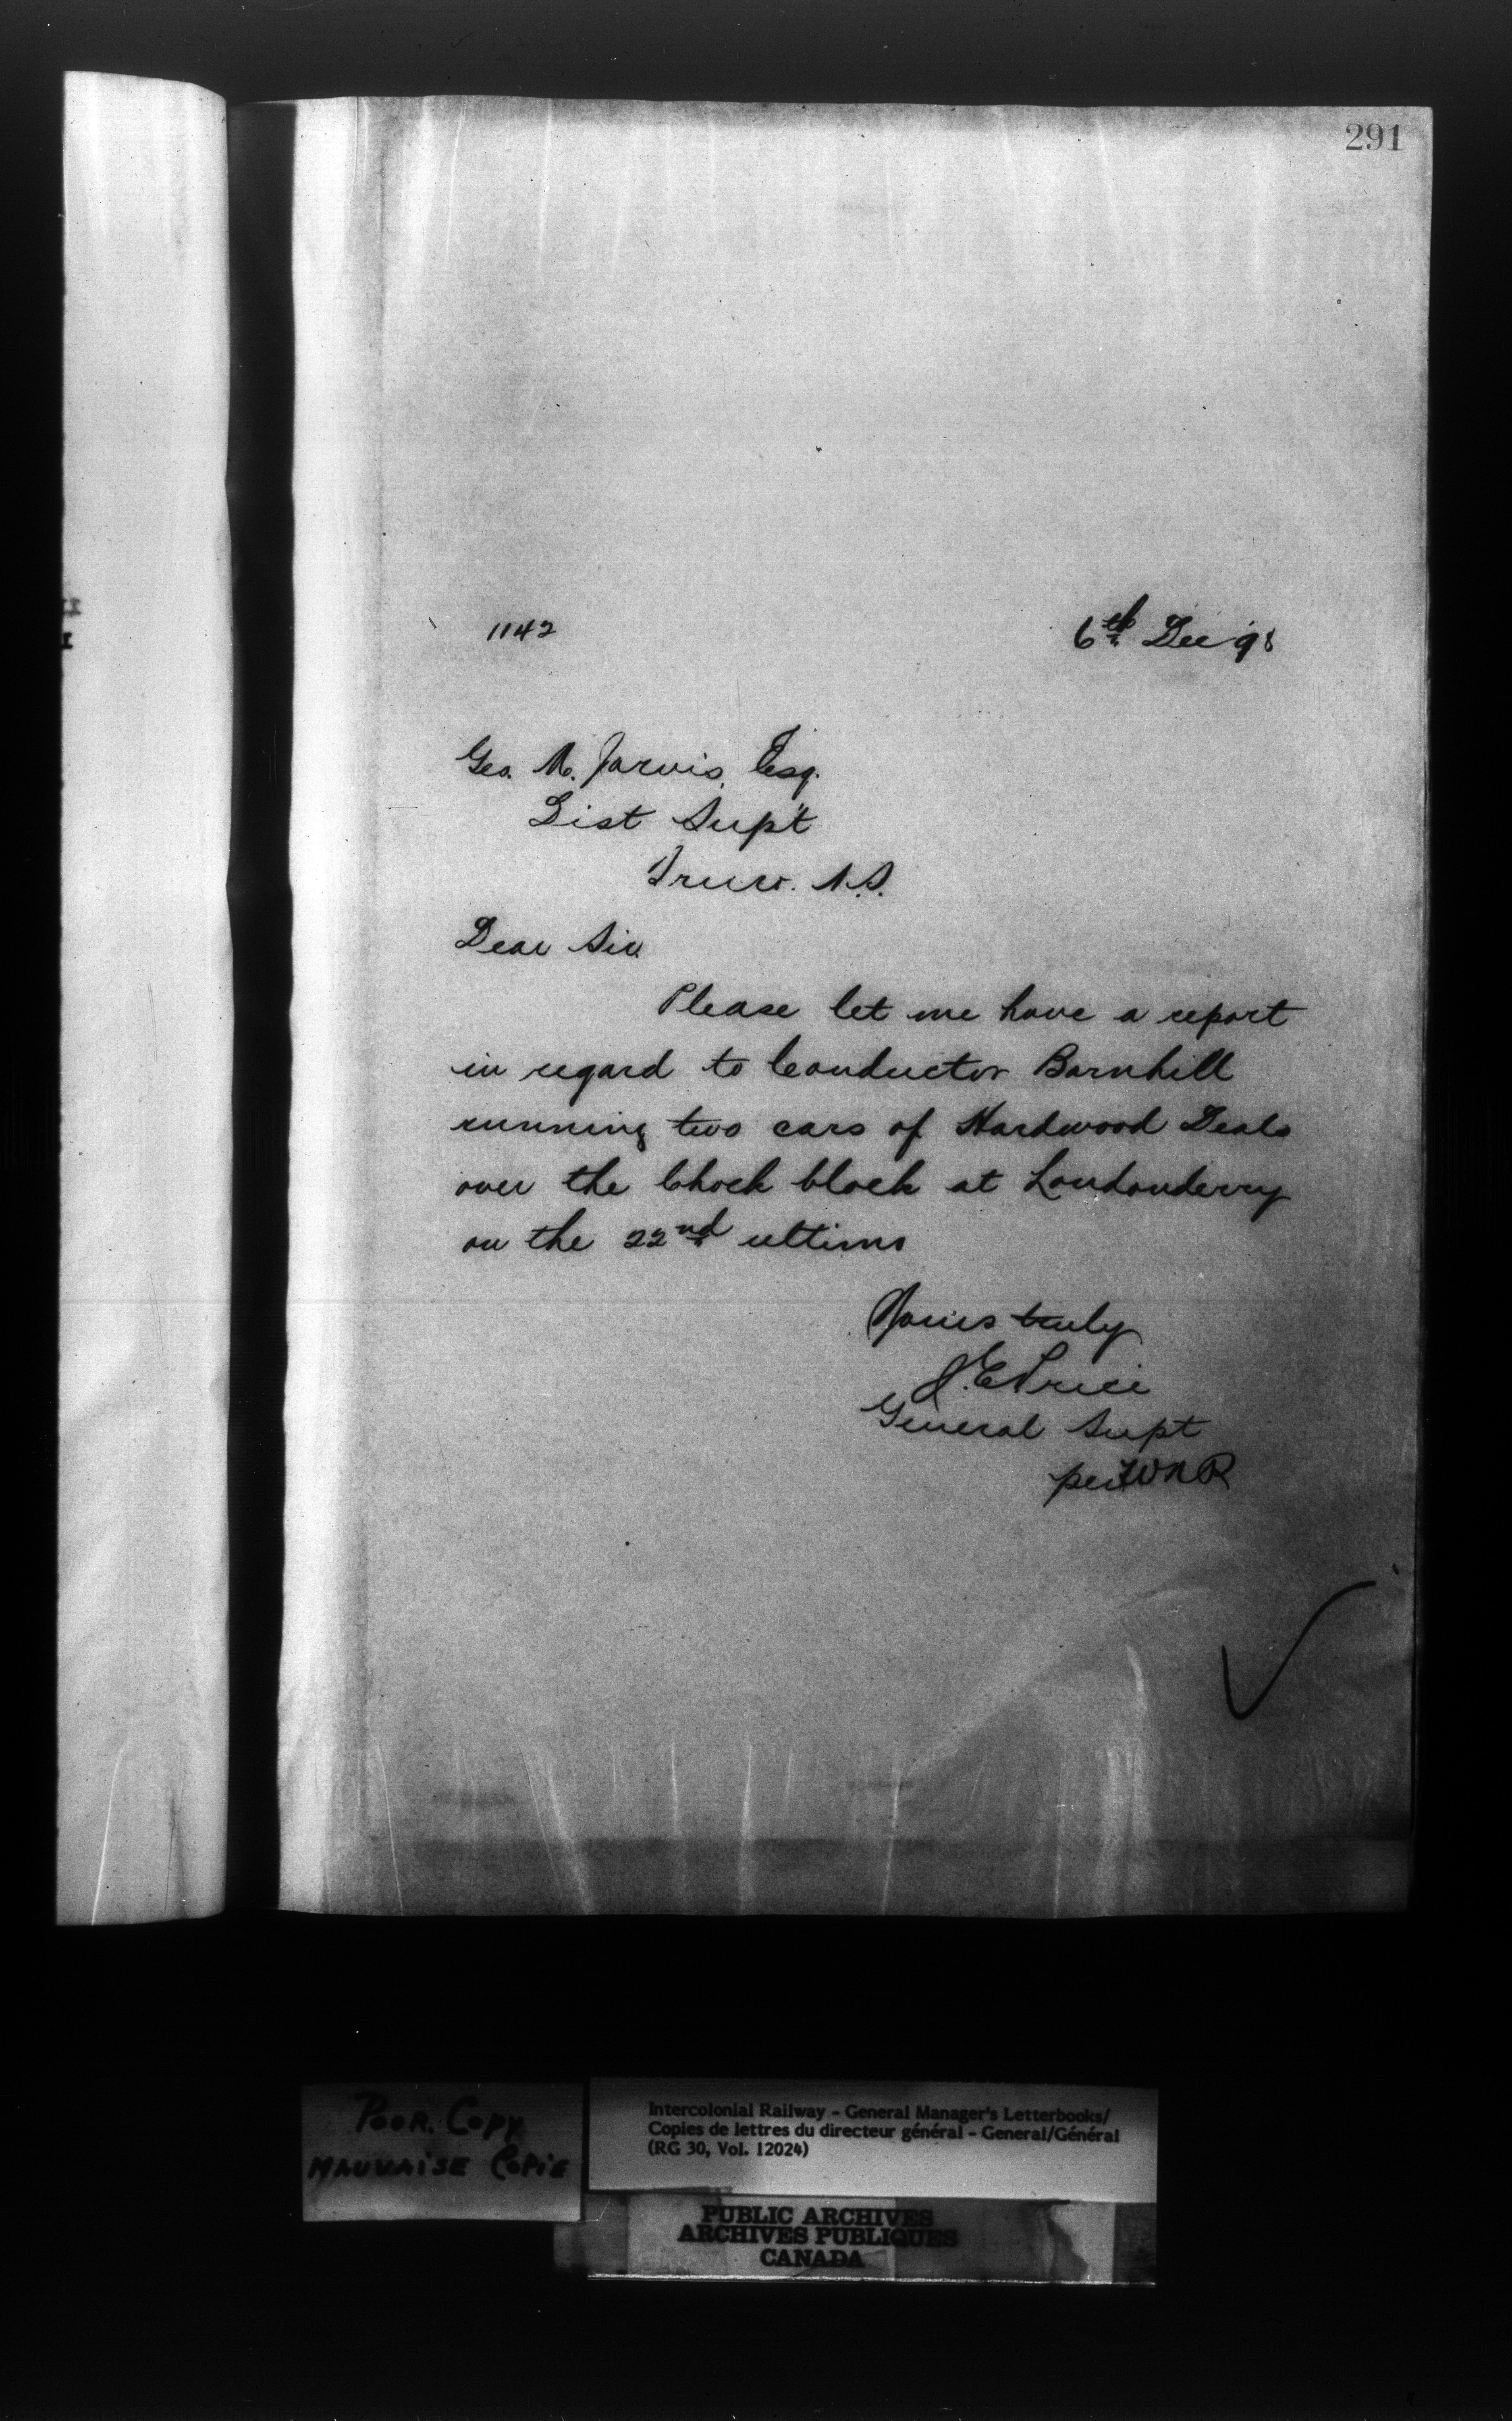 291
1142
6th Dec '98
Geo. M. Jarvis, Esq.
Dist Sup't
Truro. N.S.
Dear Sir
Please let me have a report
in regard to Conductor Barnhill
running two cars of Hardwood Deals
over the Chock block at Londonderry
on the 22nd ultimo
Yours truly
J.E. Price
General Supt
per
Poor. Copy
Mauvaise Copie
Intercolonial Railway - General Manager's Letterbooks/
Copies de lettres du directeur général - General/Général
(RG 30, Vol. 12024)
PUBLIC ARCHIVES
ARCHIVES PUBLIQUES
CANADA